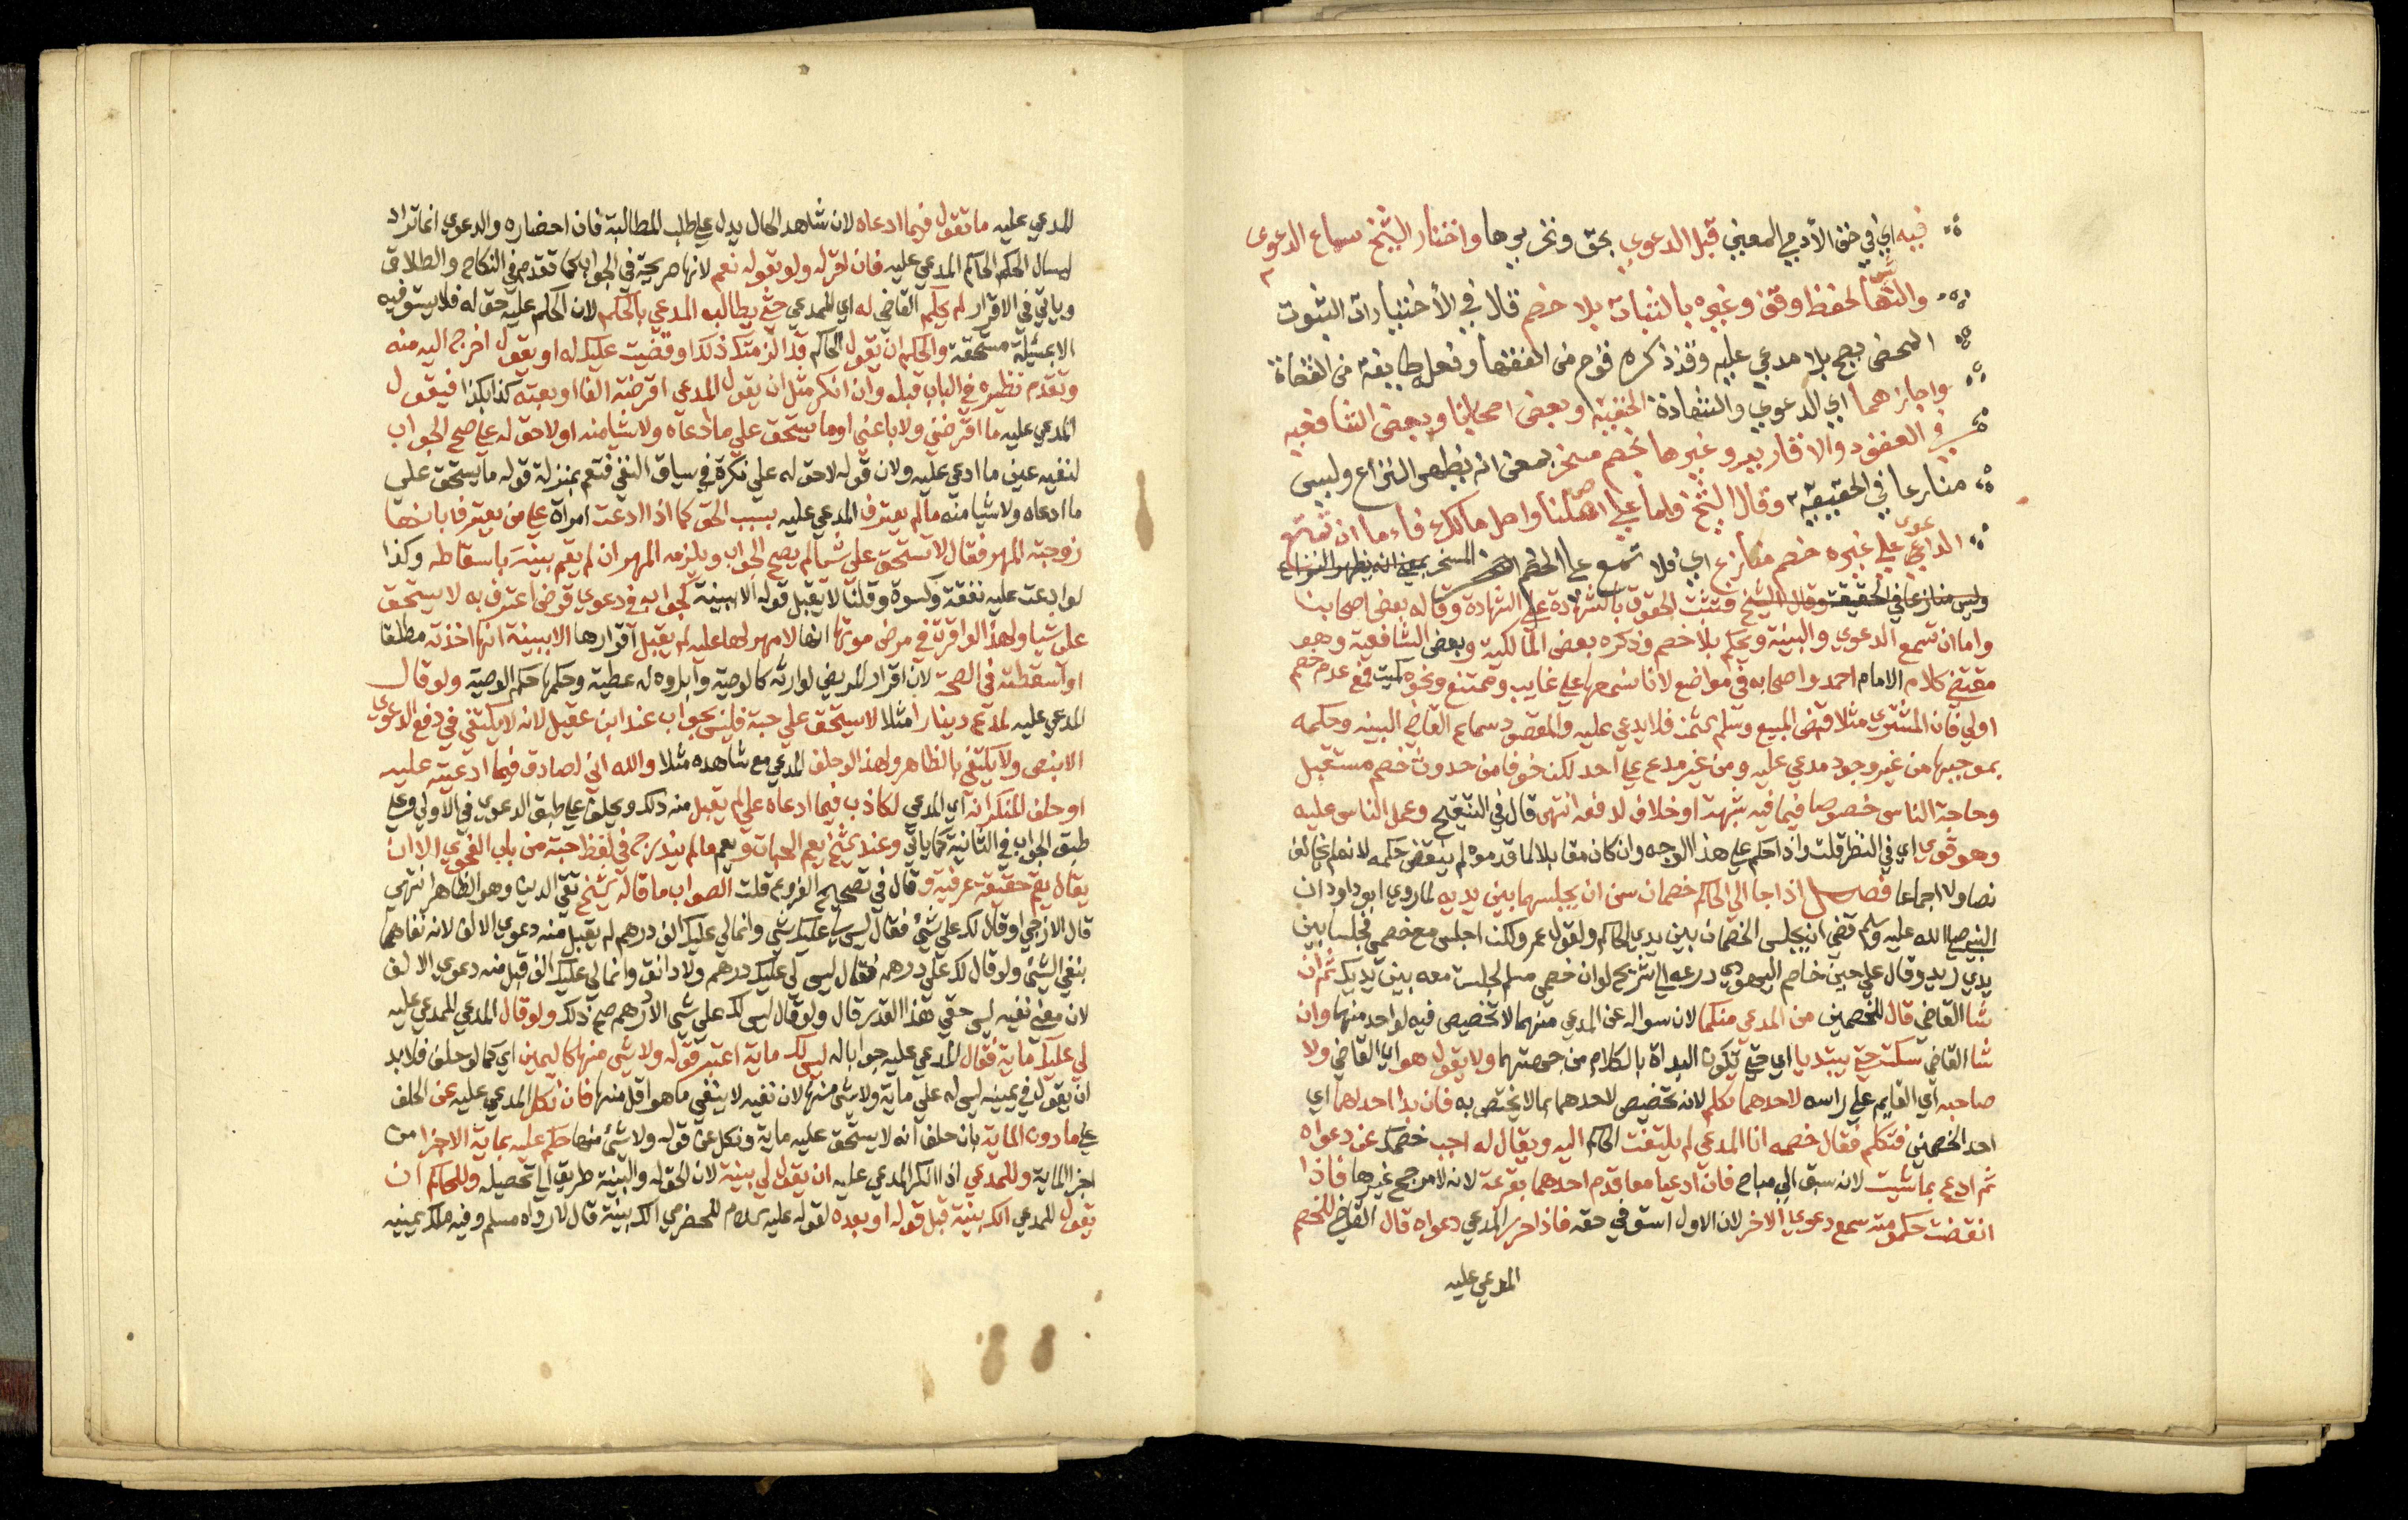 فيه اي في حق الأدمي المعين قبل الدعوي بحق وتحريرها واختار الشيخ سماع الدعوى
والشهادة لحفظ وقف وغيره بالثبات بلا خصم قال في الأختيارات الثبوت
المحض يصح بلا مدعي عليه وقد ذكره قوم من الفقها وفعله طايفة من القضاة
واجازهما اي الدعوي والشهادة الحنفية وبعض اصحابنا وبعض الشافعيه
في العقود والاقارير وغيرها بخصم مسخر بمعنى انه يظهر النزاع وليس
منازعا في الحقيقة وقال الشيخ واما على اصلنا واصل مالك فاما ان تمتنع
الدعوى علي غيره خصم منازع اي فلا تسمع على الخصم المسخر بمعني انه يظهر النزاع
وليس منازعا في الحقيقة وقال الشيخ فتثبت الحقوق بالشهادة علي الشهادة وقاله بعض اصحابنا
واما ان تسمع الدعوي والبينة ويحكم بلا خصم وذكره بعض المالكية وبعض الشافعية وهو
مقتضي كلام الامام احمد واصحابه في مواضع لانا نسمعها علي غايب وممتنع ونحوه كميت فمع عدم خصم
اولي فان المشتري مثلا قبض المبيع وسلم الثمن فلا يدعي عليه والمقصود سماع القاضي البينه وحكمه
بموجبها من غير وجود مدعي عليه ومن غير مدع علي احد لكن خوفا من حدوث خصم مستقبل
وحاجة الناس خصوصا فيما فيه شبهة او خلاف لدفعه انتهى قال في التنقيح وعمل الناس عليه
وهو قوي اي في النظر قلت واذا حكم علي هذا الوجه وان كان مقابلا لما قدموه لم ينقض حكمه لانه لم يخالف
نصا ولا اجماعا فصل اذا جا الي الحاكم خصمان سن ان يجلسهما بين يديه لما روي ابو داود ان
النبي صلي الله عليه وسلم قضي ان يجلس الخصمان بين يدي الحاكم ولقول عمر ولكن اجلس مع خصمي فجلسا بين
يدي زيد وقال علي حين خاصم اليهودي درعه الي شريح لو ان خصمي مسلم لجلست معه بين يديك ثم ان
شا القاضي قال للخصمين من المدعي منكما لان سواله عن المدعي منهما لا تخصيص فيه لواحد منهما وان
شا القاضي سكت حتي يبتديا اي حتي تكون البداة بالكلام من جهتهما ولا يقول هو اي القاضي ولا
صاحبه اي القايم علي راسه لاحدهما تكلم لانه تخصيص لاحدهما بما لا يختص به فان بدا احدهما اي
احد الخصمين فتكلم فقال خصمه انا المدعي لم يلتفت الحاكم اليه ويقال له اجب خصمك عن دعواه
ثم ادع بما شيت لانه سبق الي مباح فان ادعيا معا قدم احدهما بقرعة لانه لا مرجح غيرها فاذا
انقضت حكومته سمع دعوي الاخر لان الاول استوفي حقه فاذا حرر المدعي دعواه قال القاضي للخصم
المدعي عليه
المدعي عليه ما تقول فيما ادعاه لان شاهد الحال يدل علي طلب المطالبة فان احضاره والدعوي انما تراد
ليسال الحكم الحاكم المدعي عليه فان اقر له ولو بقوله نعم لانها صريحة في الجواب كما تقدم في النكاح والطلاق
وياتي في الاقرار لم يحكم القاضي له اي للمدعي حتي يطالبه المدعي بالحكم لان الحكم عليه حق له فلا يستوفيه
الا بمسيلة مستحقه والحكم ان يقول الحاكم قد الزمتك ذلك او قضيت عليك له او يقول اخرج اليه منه
وتقدم نظيره في الباب قبله وان انكر مثل ان يقول المدعي اقرضته الفا او بعته كذا بكذا فيقول
المدعي عليه ما اقرضني ولا باعني او ما يستحق علي ما ادعاه ولا شيا منه او لا حق له علي صح الجواب
لنفيه عين ما ادعي عليه ولان قوله لا حق له علي نكرة في سياق النفي فتعم بمنزلة قوله ما يستحق علي
ما ادعاه ولا شيا منه ما لم يعترف المدعي عليه بسبب الحق كما اذا ادعت امراة علي من يعترف بانها
زوجته المهر فقال لا تستحق علي شيا لم يصح الجواب ويلزمه المهر ان لم يقم بينة باسقاطه وكذا
لو ادعت عليه نفقة وكسوة وقلنا لا يقبل قوله الا ببينة كجوابه في دعوي قرض اعترف به لا يستحق
علي شيا ولهذا لو اقرت في مرض موتها انها لا مهر لها عليه لم يقبل اقرارها الا ببينة انها اخذته مطلقا
او اسقطته في الصحة لان اقرار المريض لوارثه كالوصية وابراوه له عطية وحكمها حكم الوصية ولو قال
المدعي عليه لمدع دينارا مثلا لا يستحق علي حبة فليس بجواب عند ابن عقيل لانه لا يكتفي في دفع الدعوي
الا بنص ولا يكتفي بالظاهر ولهذا لو حلف المدعي مع شاهده مثلا والله اني لصادق فيما ادعيته عليه
او حلف المنكر انه اي المدعي لكاذب فيما ادعاه علي لم يقبل منه ذلك ويحلف علي طبق الدعوي في الاولي وعلي
طبق الجواب في الثانية كما ياتي وعند الشيخ يعم الحبات ويعم ما لم يندرج في لفظ حبة من باب الفحوي الا ان
يقال يعم حقيقة عرفية وقال في تصحيح الفروع قلت الصواب ما قاله الشيخ تقي الدين وهو الظاهر انتهي
قال الازجي لو قال لك علي شي فقال ليس لي عليك شي وانما لي عليك الف درهم لم يقبل منه دعوي الالف لانه نفاها
بنفي الشي ولو قال لك علي درهم فقال ليس لي عليك درهم ولا دانق وانما لي عليك الف قبل منه دعوي الالف
لان معني نفيه ليس حقي هذا القدر قال ولو قال ليس لك علي شي الا درهم صح ذلك ولو قال المدعي للمدعي عليه
لي عليك ماية فقال المدعي عليه جوابا له ليس لك ماية اعتبر قوله ولا شي منها كاليمين اي كما لو حلف فلا بد
ان يقول في يمينه ليس له علي ماية ولا شي منها لان نفيه لا ينفي ما هو اقل منها فان نكل المدعي عليه عن الحلف
علي ما دون الماية بان حلف انه لا يستحق عليه ماية ونكل عن قوله ولا شي منها حكم عليه بماية الا جزا من
اجزا الماية وللمدعي اذا انكر المدعي عليه ان يقول لي بينة لان الحق له والبينة طريق الي تحصيله وللحاكم ان
يقول للمدعي الك بينة قبل قوله او بعده لقوله عليه السلام للحضرمي الك بينة قال لا رواه مسلم وفيه فلك يمينه